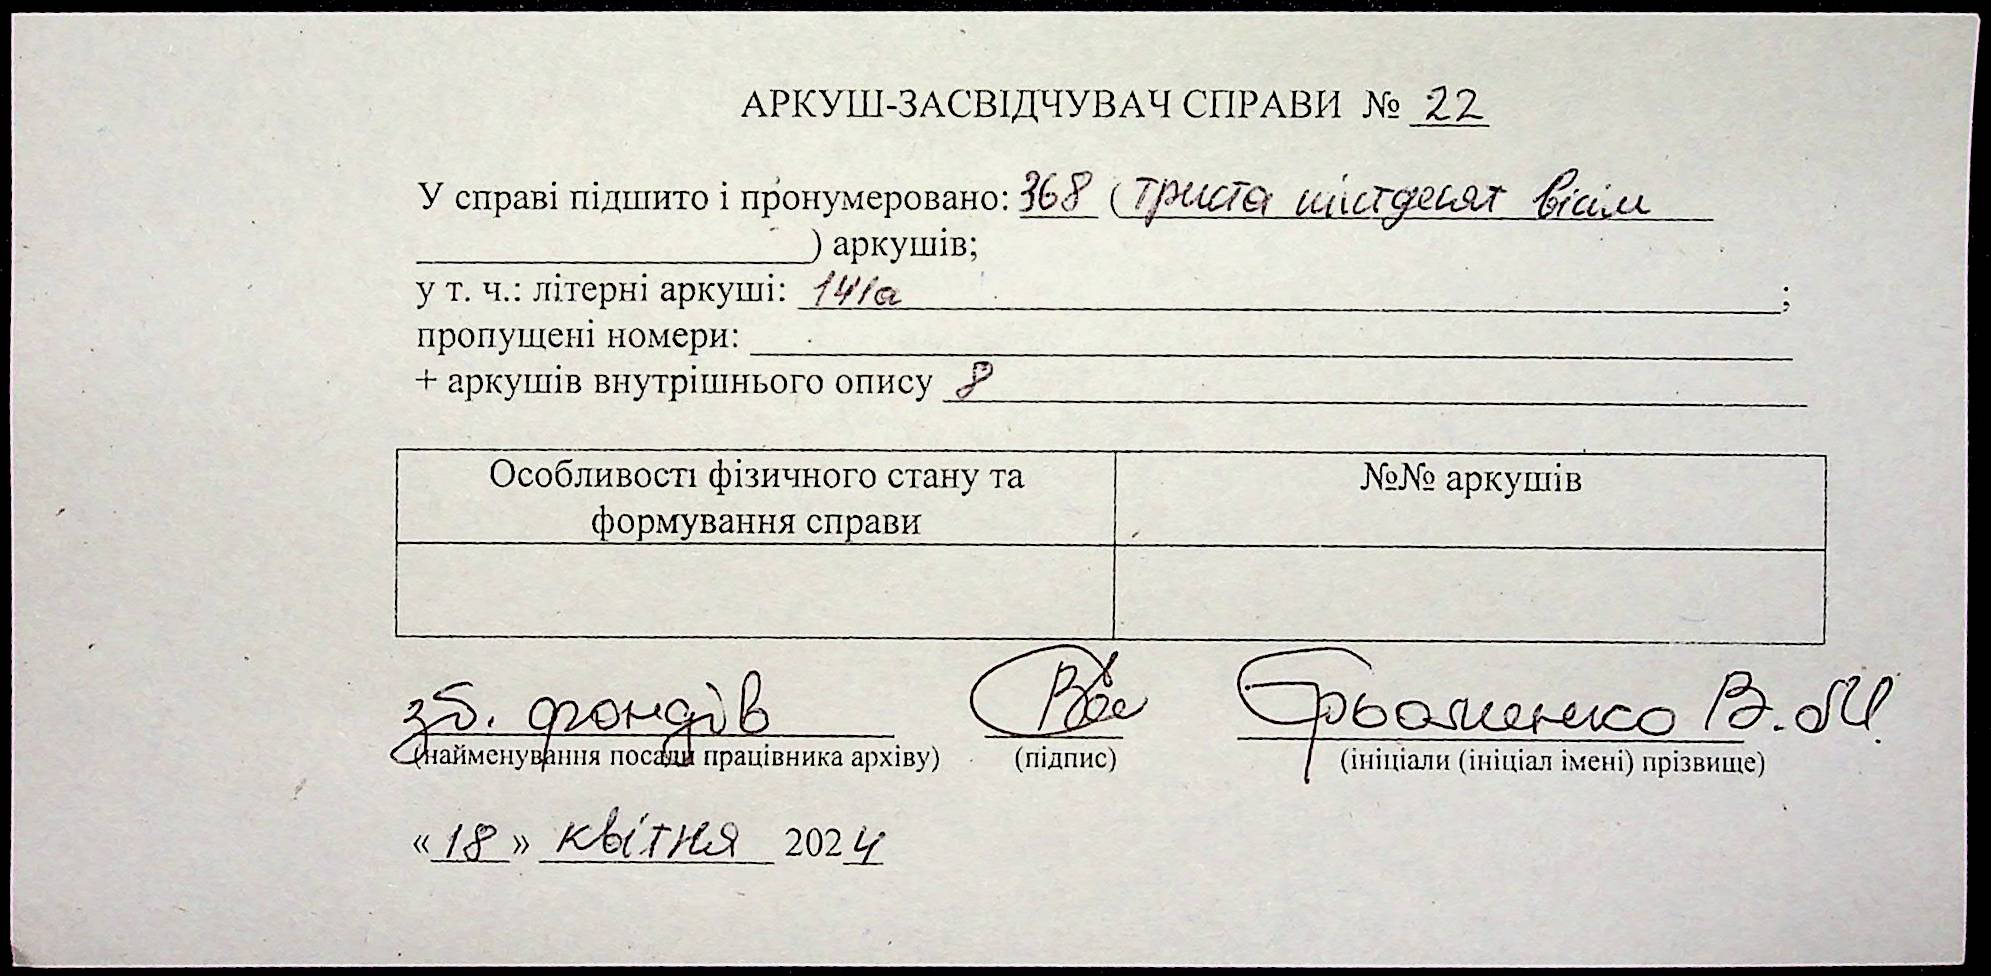 АРКУШ-ЗАСВІДЧУВАЧ СПРАВИ № 22
У справі підшито і пронумеровано: 368 (триста шістдесят вісім
) аркушів;
у т. ч.: літерні аркуші: 141а ;
пропущені номери:
+ аркушів внутрішнього опису 8
Особливості фізичного стану та формування справи
№№ аркушів
зб. фондів
(найменування посади працівника архіву) (підпис) (ініціали (ініціал імені) прізвище)
«18» квітня 2024